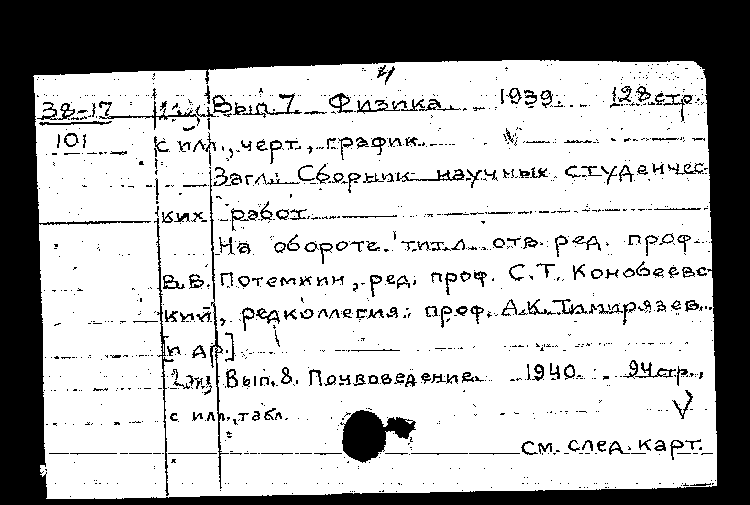 4
38-17 Вып. 7. Физика. 1939. 128 стр.
101 с илл., черт., график.
Загл.: Сборник научных студенчес-
ких работ
На обороте. тит.л. отв. ред. проф.
В.В. Потемкин, ред. проф. С.Т. Конобеевс-
кий, редколлегия: проф. А.К. Тимирязев..
[и др.]
2 экз Вып. 8. Почвоведение. 1940. 94 стр.,
с илл., табл.
см. след. карт.